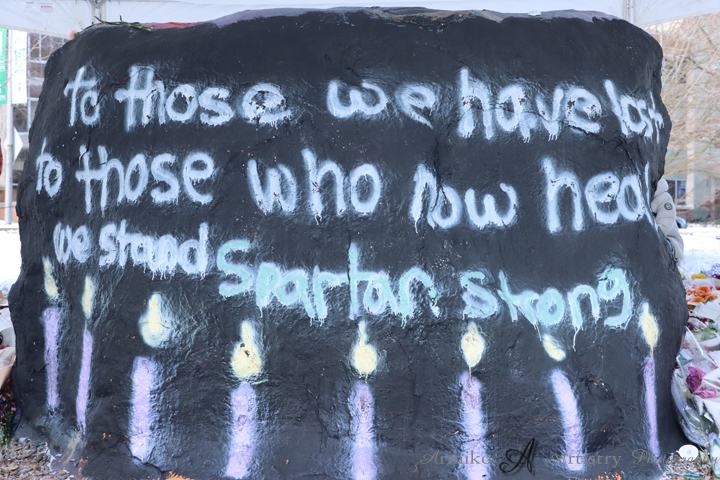 to those we have lost
to those who now heal
we stand Spartan strong
A
Photography